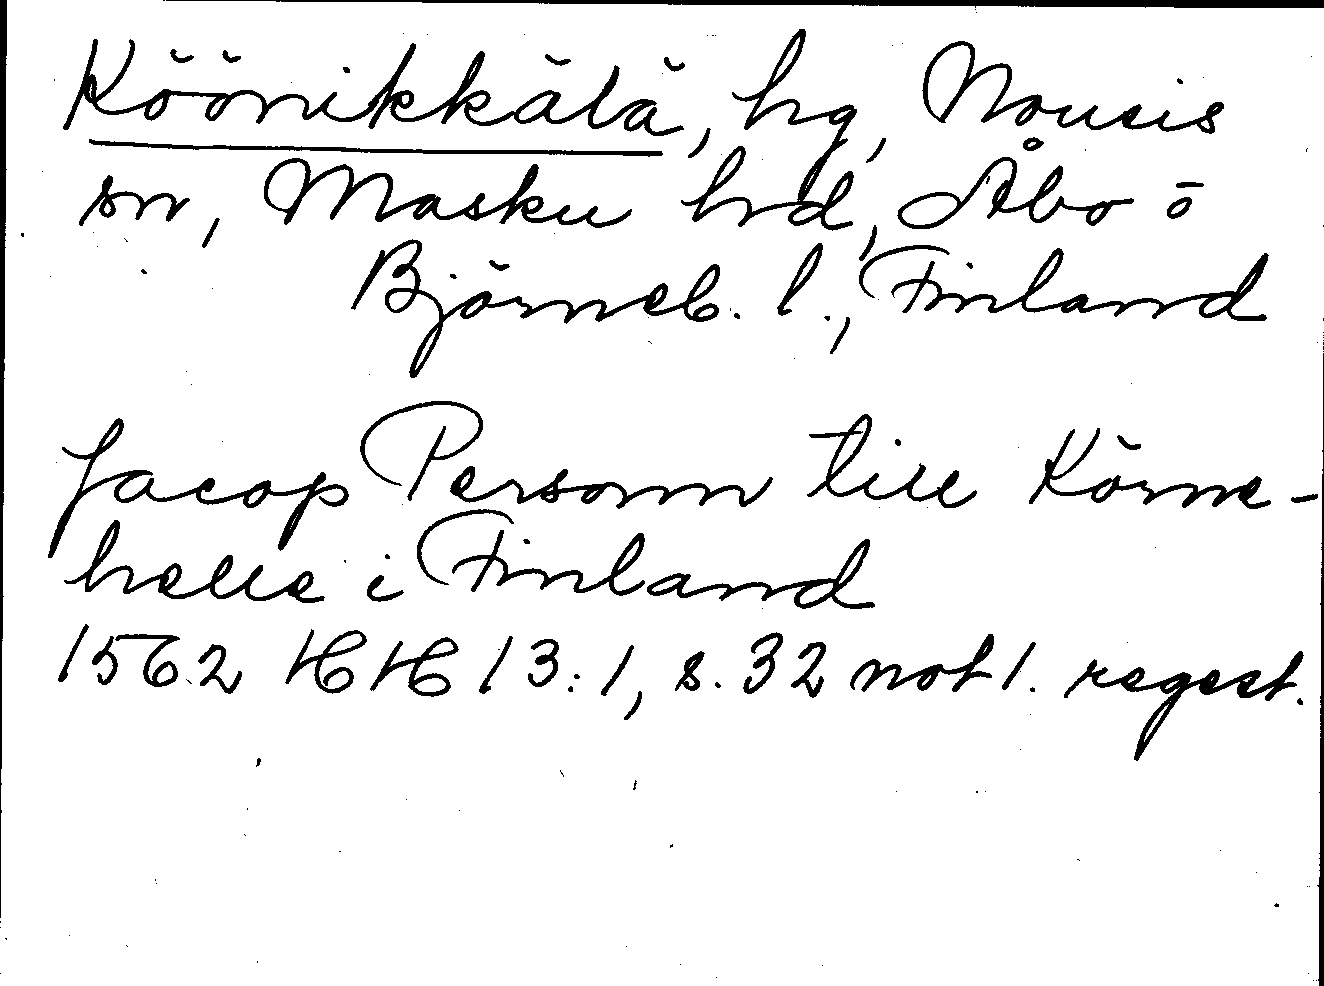 Köönikkälä, hg, Nousis
sn, Masku hrd, Åbo o
Björneb. l., Finland
Jacop Personn till Körne-
helle i Finland
1562 HH 13:1, s. 32 not 1. regest.